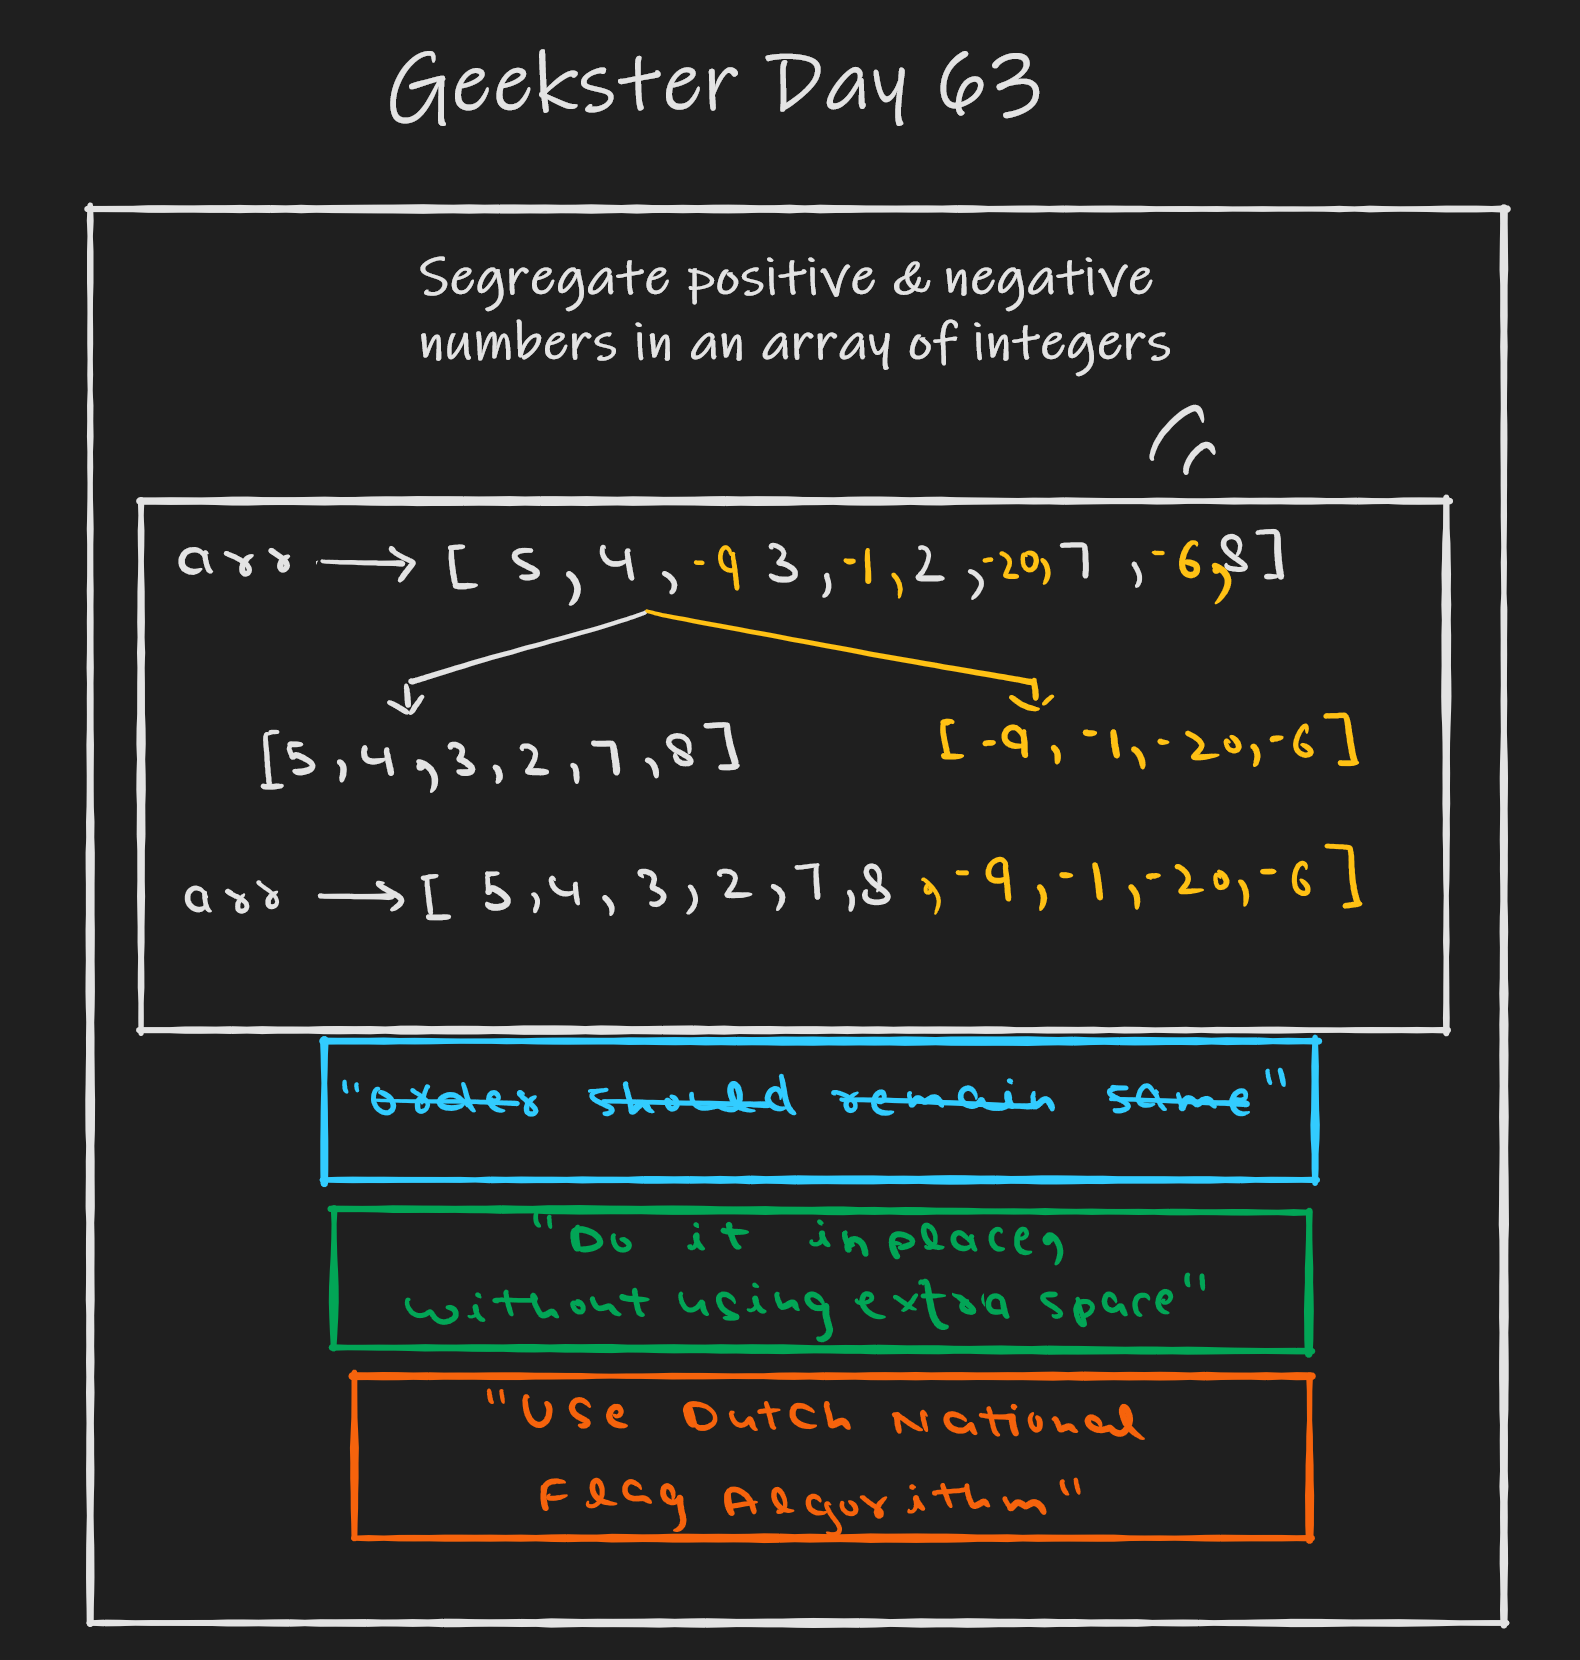 Geekster Day 63
Segregate positive & negative
numbers in an array of integers
arr → [ 5 , 4 , -9 3 , -1 , 2 , -20, 7 , -6, 8 ]
[5 , 4 , 3 , 2 , 7 , 8 ]
[ -9 , -1 , -20, -6 ]
arr → [ 5 , 4 , 3 , 2 , 7 , 8 , -9 , -1 , -20, -6 ]
"order should remain same"
"Do it inplace,
without using extra space"
"Use Dutch National
Flag Algorithm"